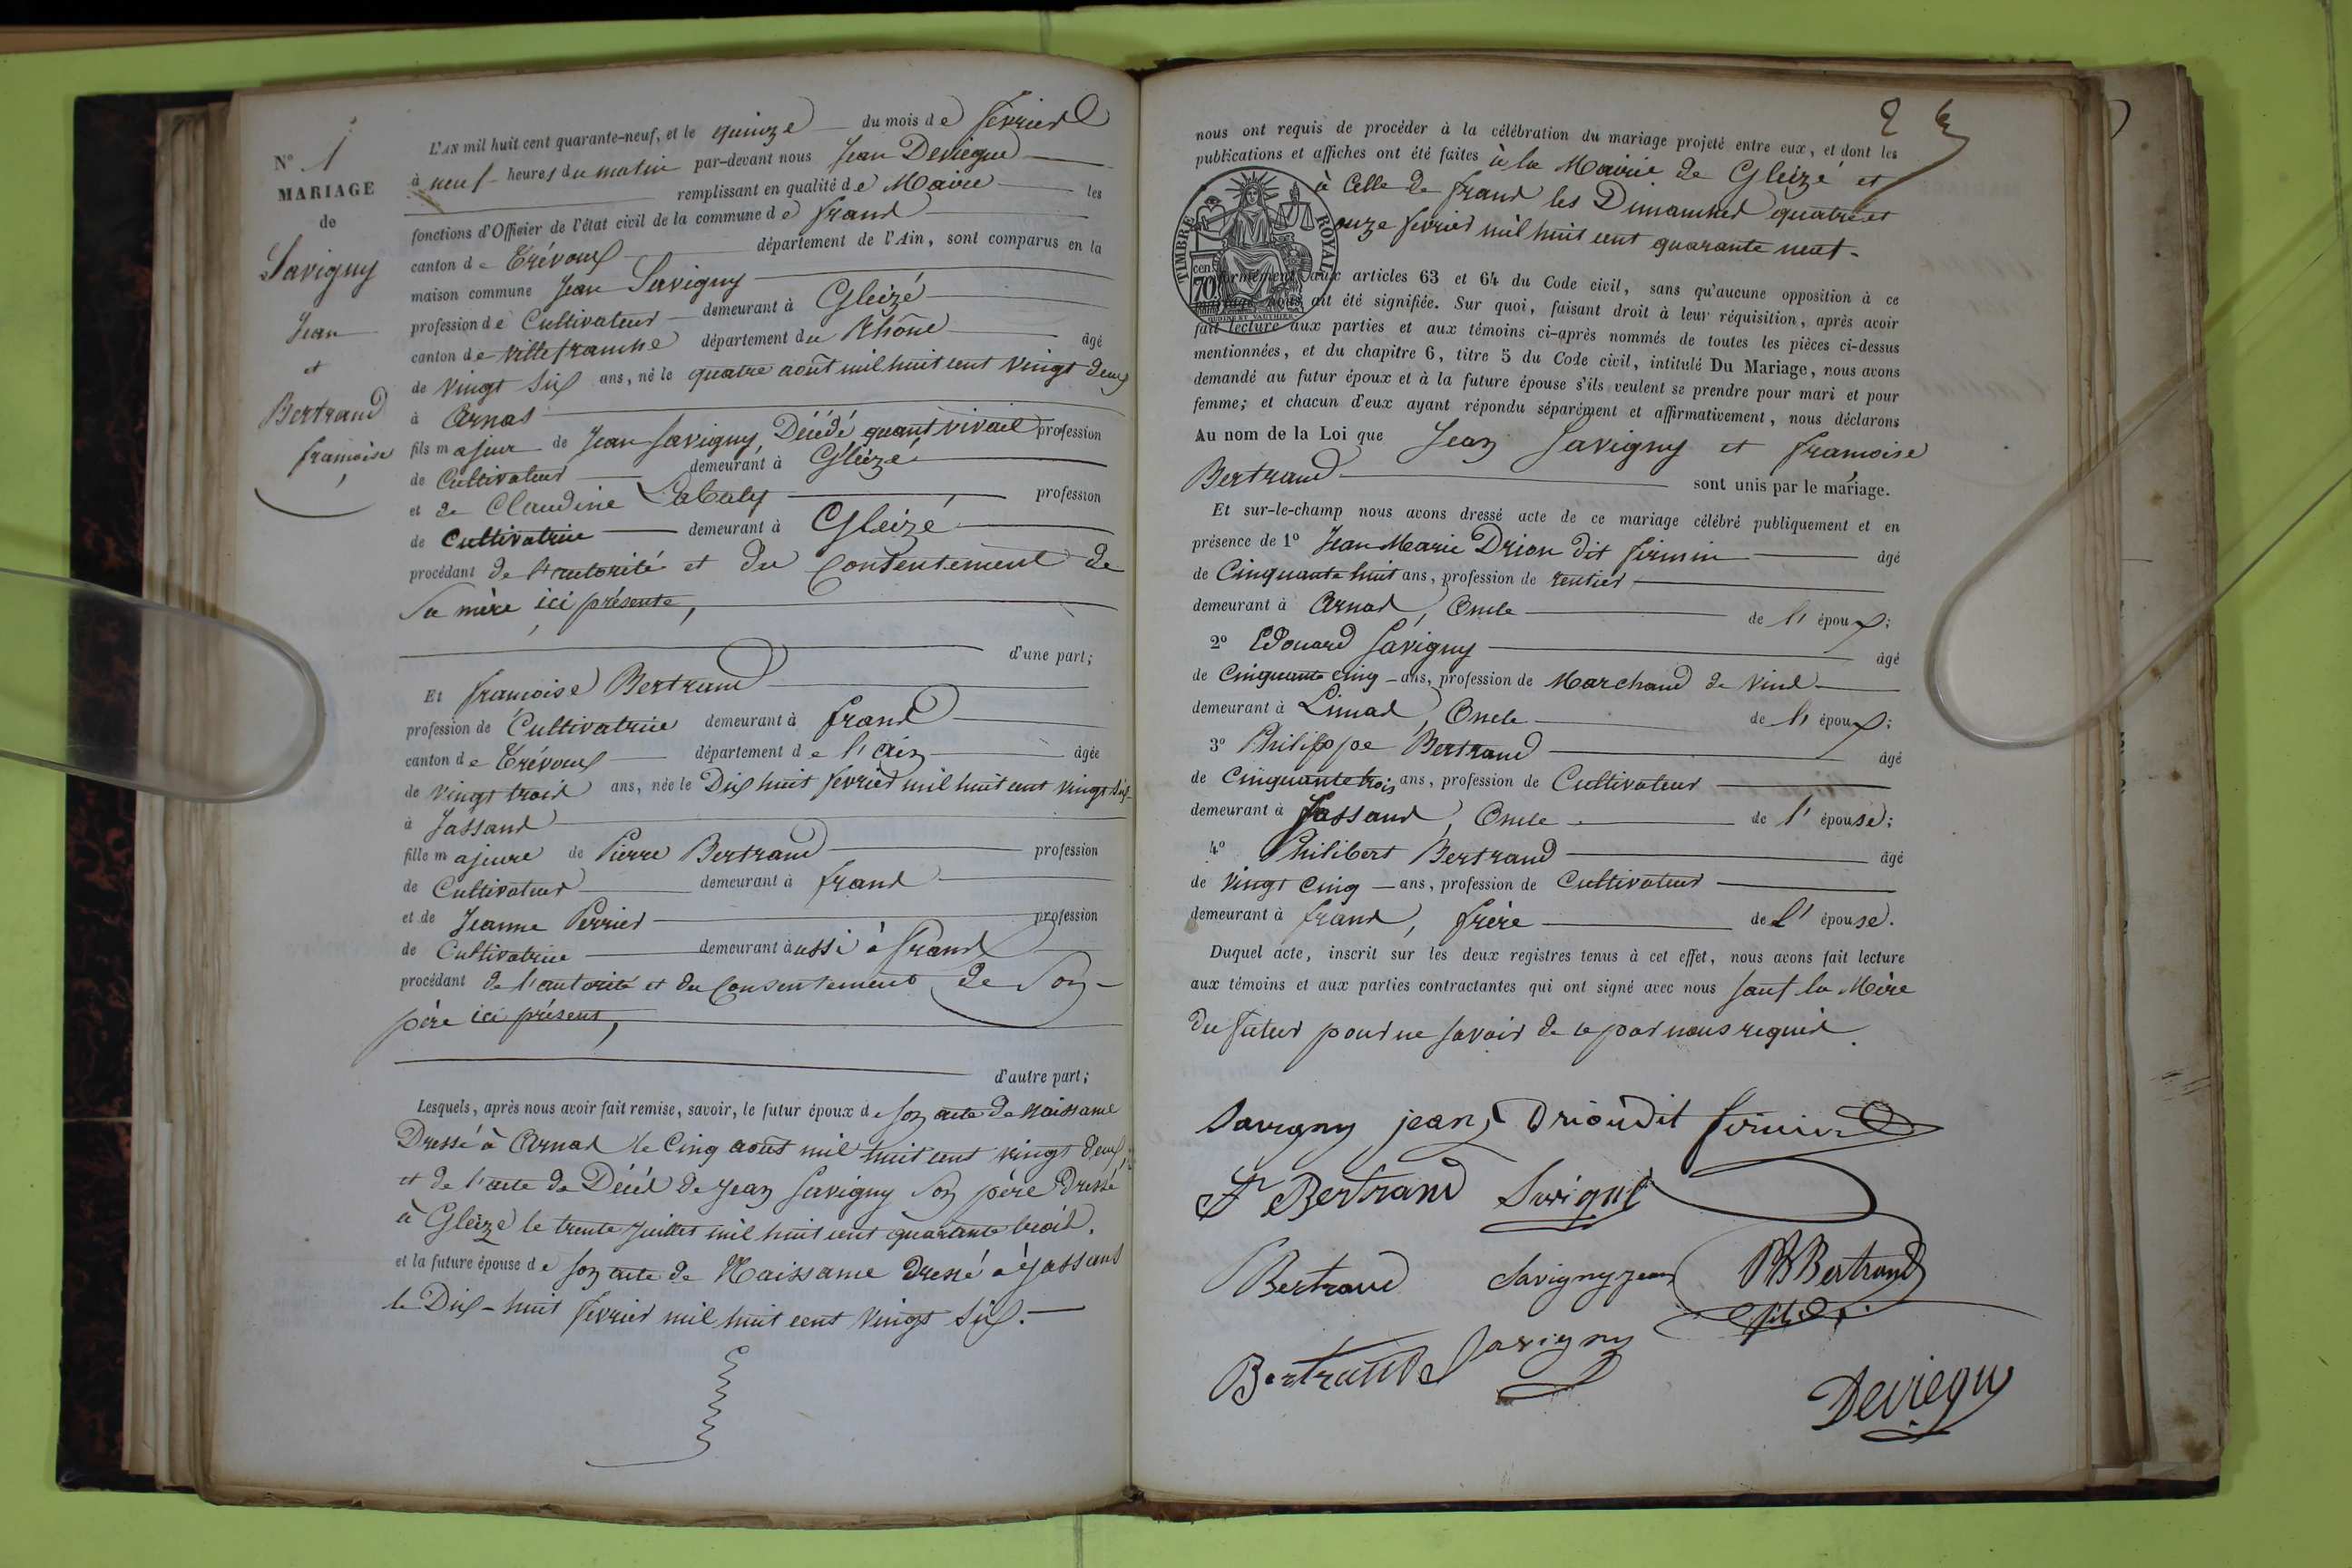 N° 1
MARIAGE
de
Savigny
Jean
et
Bertrand
françoise
L'AN mil huit cent quarante-neuf, et le quinze du mois de février
à neuf heures du matin par-devant nous Jean
remplissant en qualité de Maire les
fonctions d'Officier de l'état civil de la commune de frans
canton de Trévoux département de l'Ain, sont comparus en la
maison commune Jean Savigny
profession de Cultivateur demeurant à Gleizé
canton de villefranche département du Rhône âgé
de vingt six ans, né le quatre août mil huit cent vingt deux
à Arnas
fils majeur de Jean Savigny, Décédé quant vivait profession
de Cultivateur demeurant à Gleizé
et de Claudine profession
de Cultivatrice demeurant à Gleizé
procédant de l'autorité et du Consentement de
sa mère ici présente,
d'une part;
Et françoise Bertrand
profession de Cultivatrice demeurant à frans
canton de Trévoux département de l'Ain âgée
de vingt trois ans, née le Dix huit février mil huit cent vingt six
à Jassans
fille majeure de Pierre Bertrand profession
de Cultivateur demeurant à frans
et de Jeanne Perrier profession
de Cultivatrice demeurant aussi à frans
procédant de l'autorité et du Consentement de Son
père ici présent,
d'autre part;
Lesquels, après nous avoir fait remise, savoir, le futur époux de son acte de Naissance
Dressé à Arnas le Cinq août mil huit cent vingt deux,
et de l'acte de Décès de Jean Savigny son père Dressé
à Gleizé le trente juillet mil huit cent quarante trois.
et la future épouse de son acte de Naissance dressé à Jassans
le Dix-huit février mil huit cent vingt six.
2
nous ont requis de procéder à la célébration du mariage projeté entre eux, et dont les
publications et affiches ont été faites à la Mairie de Gleizé et
à Celle de frans les Dimanches quatre et
onze février mil huit cent quarante neuf.
TIMBRE ROYAL
cen. 70
conformément aux articles 63 et 64 du Code civil, sans qu'aucune opposition à ce
mariage nous ait été signifiée. Sur quoi, faisant droit à leur réquisition, après avoir
fait lecture aux parties et aux témoins ci-après nommés de toutes les pièces ci-dessus
mentionnées, et du chapitre 6, titre 5 du Code civil, intitulé Du Mariage, nous avons
demandé au futur époux et à la future épouse s'ils veulent se prendre pour mari et pour
femme; et chacun d'eux ayant répondu séparément et affirmativement, nous déclarons
Au nom de la Loi que Jean Savigny et françoise
Bertrand sont unis par le mariage.
Et sur-le-champ nous avons dressé acte de ce mariage célébré publiquement et en
présence de 1° Jean Marie Drion dit firmin âgé
de Cinquante huit ans, profession de rentier
demeurant à Arnas, Oncle de l'époux;
2° Edouard Savigny âgé
de Cinquante cinq ans, profession de Marchand de vins
demeurant à Limas, Oncle de l'époux;
3° Philippe Bertrand âgé
de Cinquante trois ans, profession de Cultivateur
demeurant à Jassans, Oncle de l'épouse;
4° Philibert Bertrand âgé
de vingt cinq ans, profession de Cultivateur
demeurant à frans, frère de l'épouse.
Duquel acte, inscrit sur les deux registres tenus à cet effet, nous avons fait lecture
aux témoins et aux parties contractantes qui ont signé avec nous sauf la Mère
du futur pour ne savoir de ce par nous requis.
Savigny jean Drion dit firmin
F Bertrand Savigny
Bertrand Savigny jean Bertrand
Bertrand Savigny